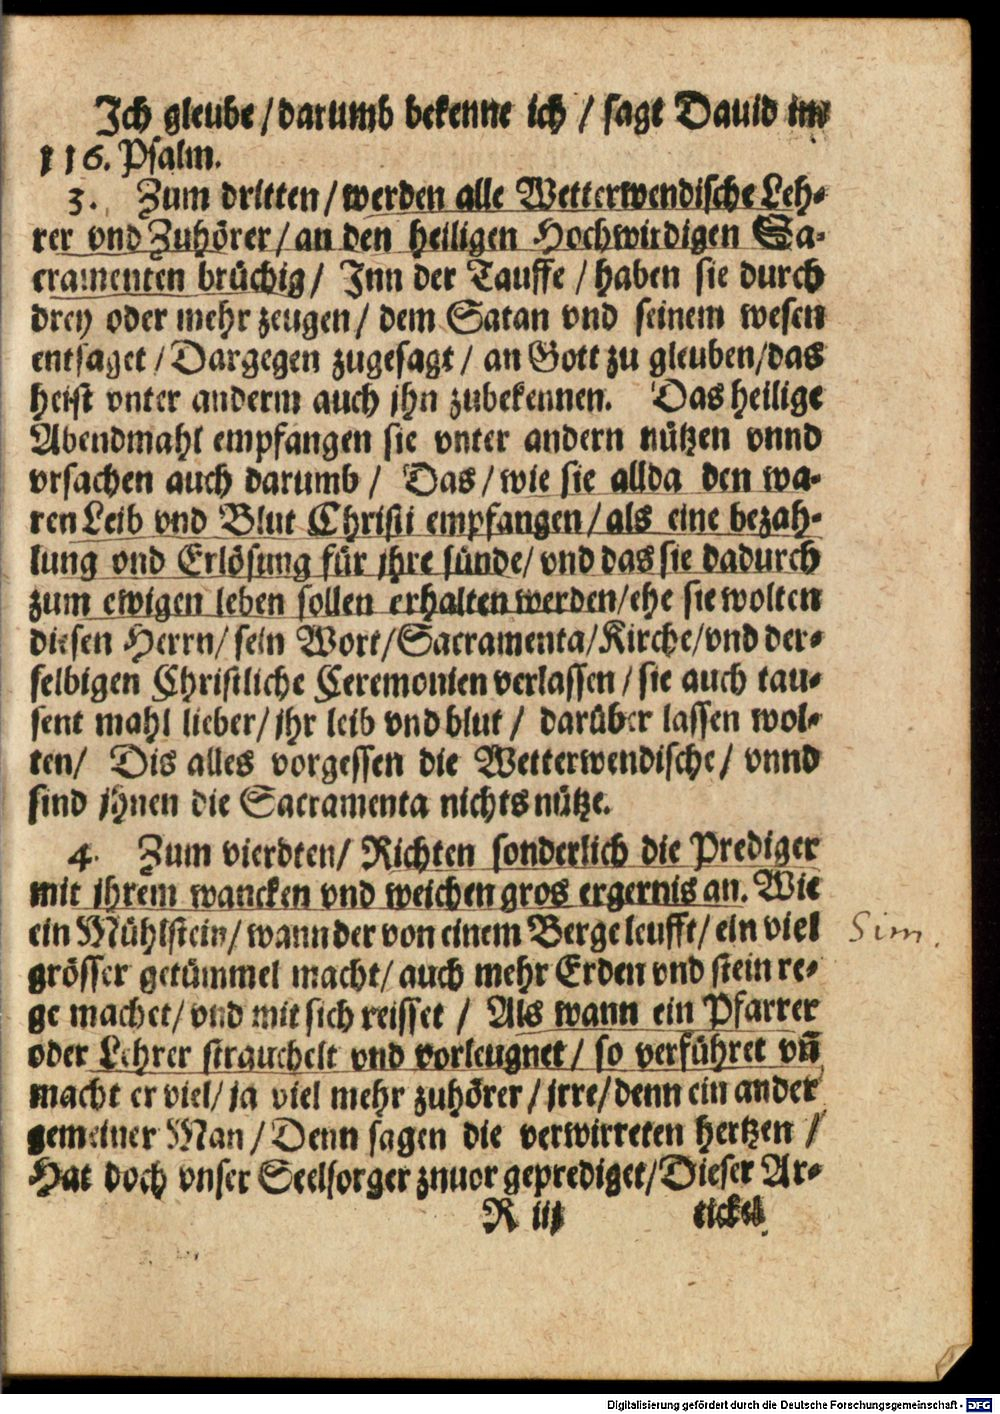 Ich gleube / darumb bekenne ich / sagt Dauid im
116. Psalm.
3. Zum dritten / werden alle Wetterwendische Leh-
rer vnd Zuhörer / an den heiligen Hochwirdigen Sa-
cramenten brüchig / Inn der Tauffe / haben sie durch
drey oder mehr zeugen / dem Satan vnd seinem wesen
entsaget / Dargegen zugesagt / an Gott zu gleuben / das
heist vnter anderm auch jhn zubekennen. Das heilige
Abendmahl empfangen sie vnter andern nützen vnnd
vrsachen auch darumb / Das / wie sie allda den wa-
ren Leib vnd Blut Christi empfangen / als eine bezah-
lung vnd Erlösung für jhre sünde / vnd das sie dadurch
zum ewigen leben sollen erhalten werden / ehe sie wolten
diesen Herrn / sein Wort / Sacramenta / Kirche / vnd der-
selbigen Christliche Ceremonien verlassen / sie auch tau-
sent mahl lieber / jhr leib vnd blut / darüber lassen wol-
ten / Dis alles vorgessen die Wetterwendische / vnnd
sind jhnen die Sacramenta nichts nütze.
4. Zum vierdten / Richten sonderlich die Prediger
mit jhrem wancken vnd weichen gros ergernis an. Wie
ein Mühlstein / wann der von einem Berge leufft / ein viel
grösser getümmel macht / auch mehr Erden vnd stein re-
ge machet / vnd mit sich reisset / Als wann ein Pfarrer
oder Lehrer strauchelt vnd vorleugnet / so verführet vn̄
macht er viel / ja viel mehr zuhörer / jrre / denn ein ander
gemeiner Man / Denn sagen die verwirreten hertzen /
Hat doch vnser Seelsorger znuor geprediget / Dieser Ar-
R iij tickel
Sim.
Digitalisierung gefördert durch die Deutsche Forschungsgemeinschaft - DFG